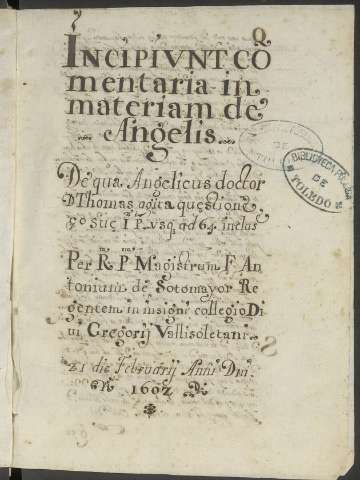 Q
INCIPIVNT CŌ
mentaria in
materiam de
Angelis
De qua Angelicus doctor
D Thomas agit a quęstione
50 suę I P. vsq ad 64 inclus
Per R. P. Magistrum F. An
tonium de Sotomayor Re
gentem in insigni collegio Di
ui Gregorij Vallisoletani
21 die Februarij Anni Dni
1602
BIBLIOTECA
DE
TOLEDO